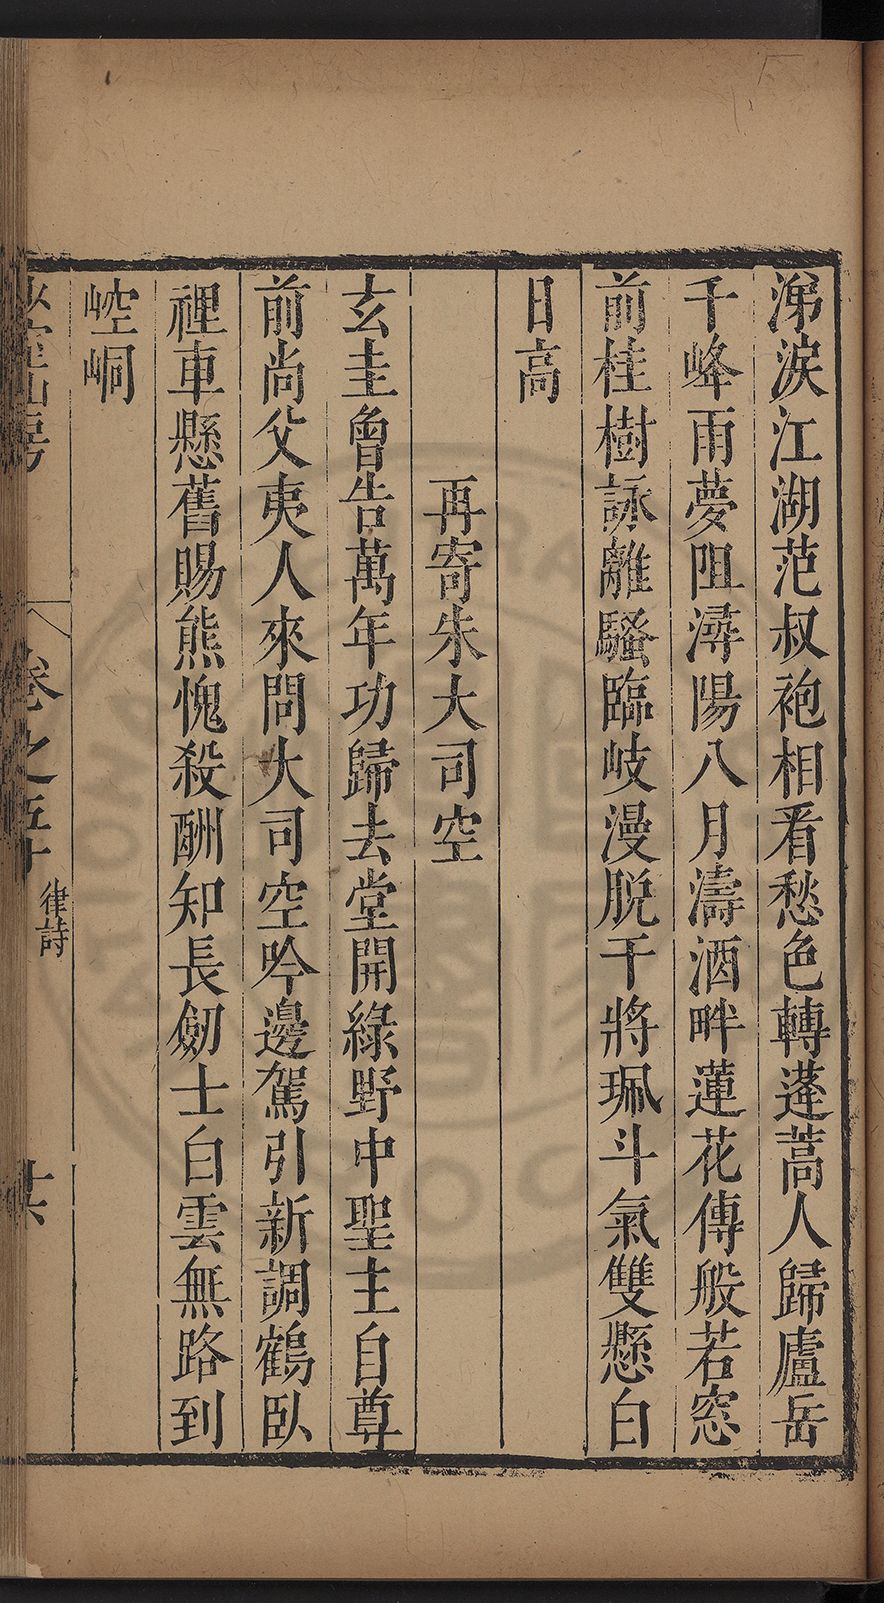 涕淚江湖范叔袍相看愁色轉蓬蒿人歸廬岳
千峰雨夢阻潯陽八月濤酒畔蓮花傳般若窓
前桂樹詠離騷臨岐漫脫干將珮斗氣雙懸白
日高
再寄朱大司空
玄圭曾告萬年功歸去堂開綠野中聖主自尊
前尚父夷人來問大司空吟邊駕引新調鶴臥
裡車懸舊賜熊愧殺酬知長劒士白雲無路到
崆峒
卷之五十 律詩